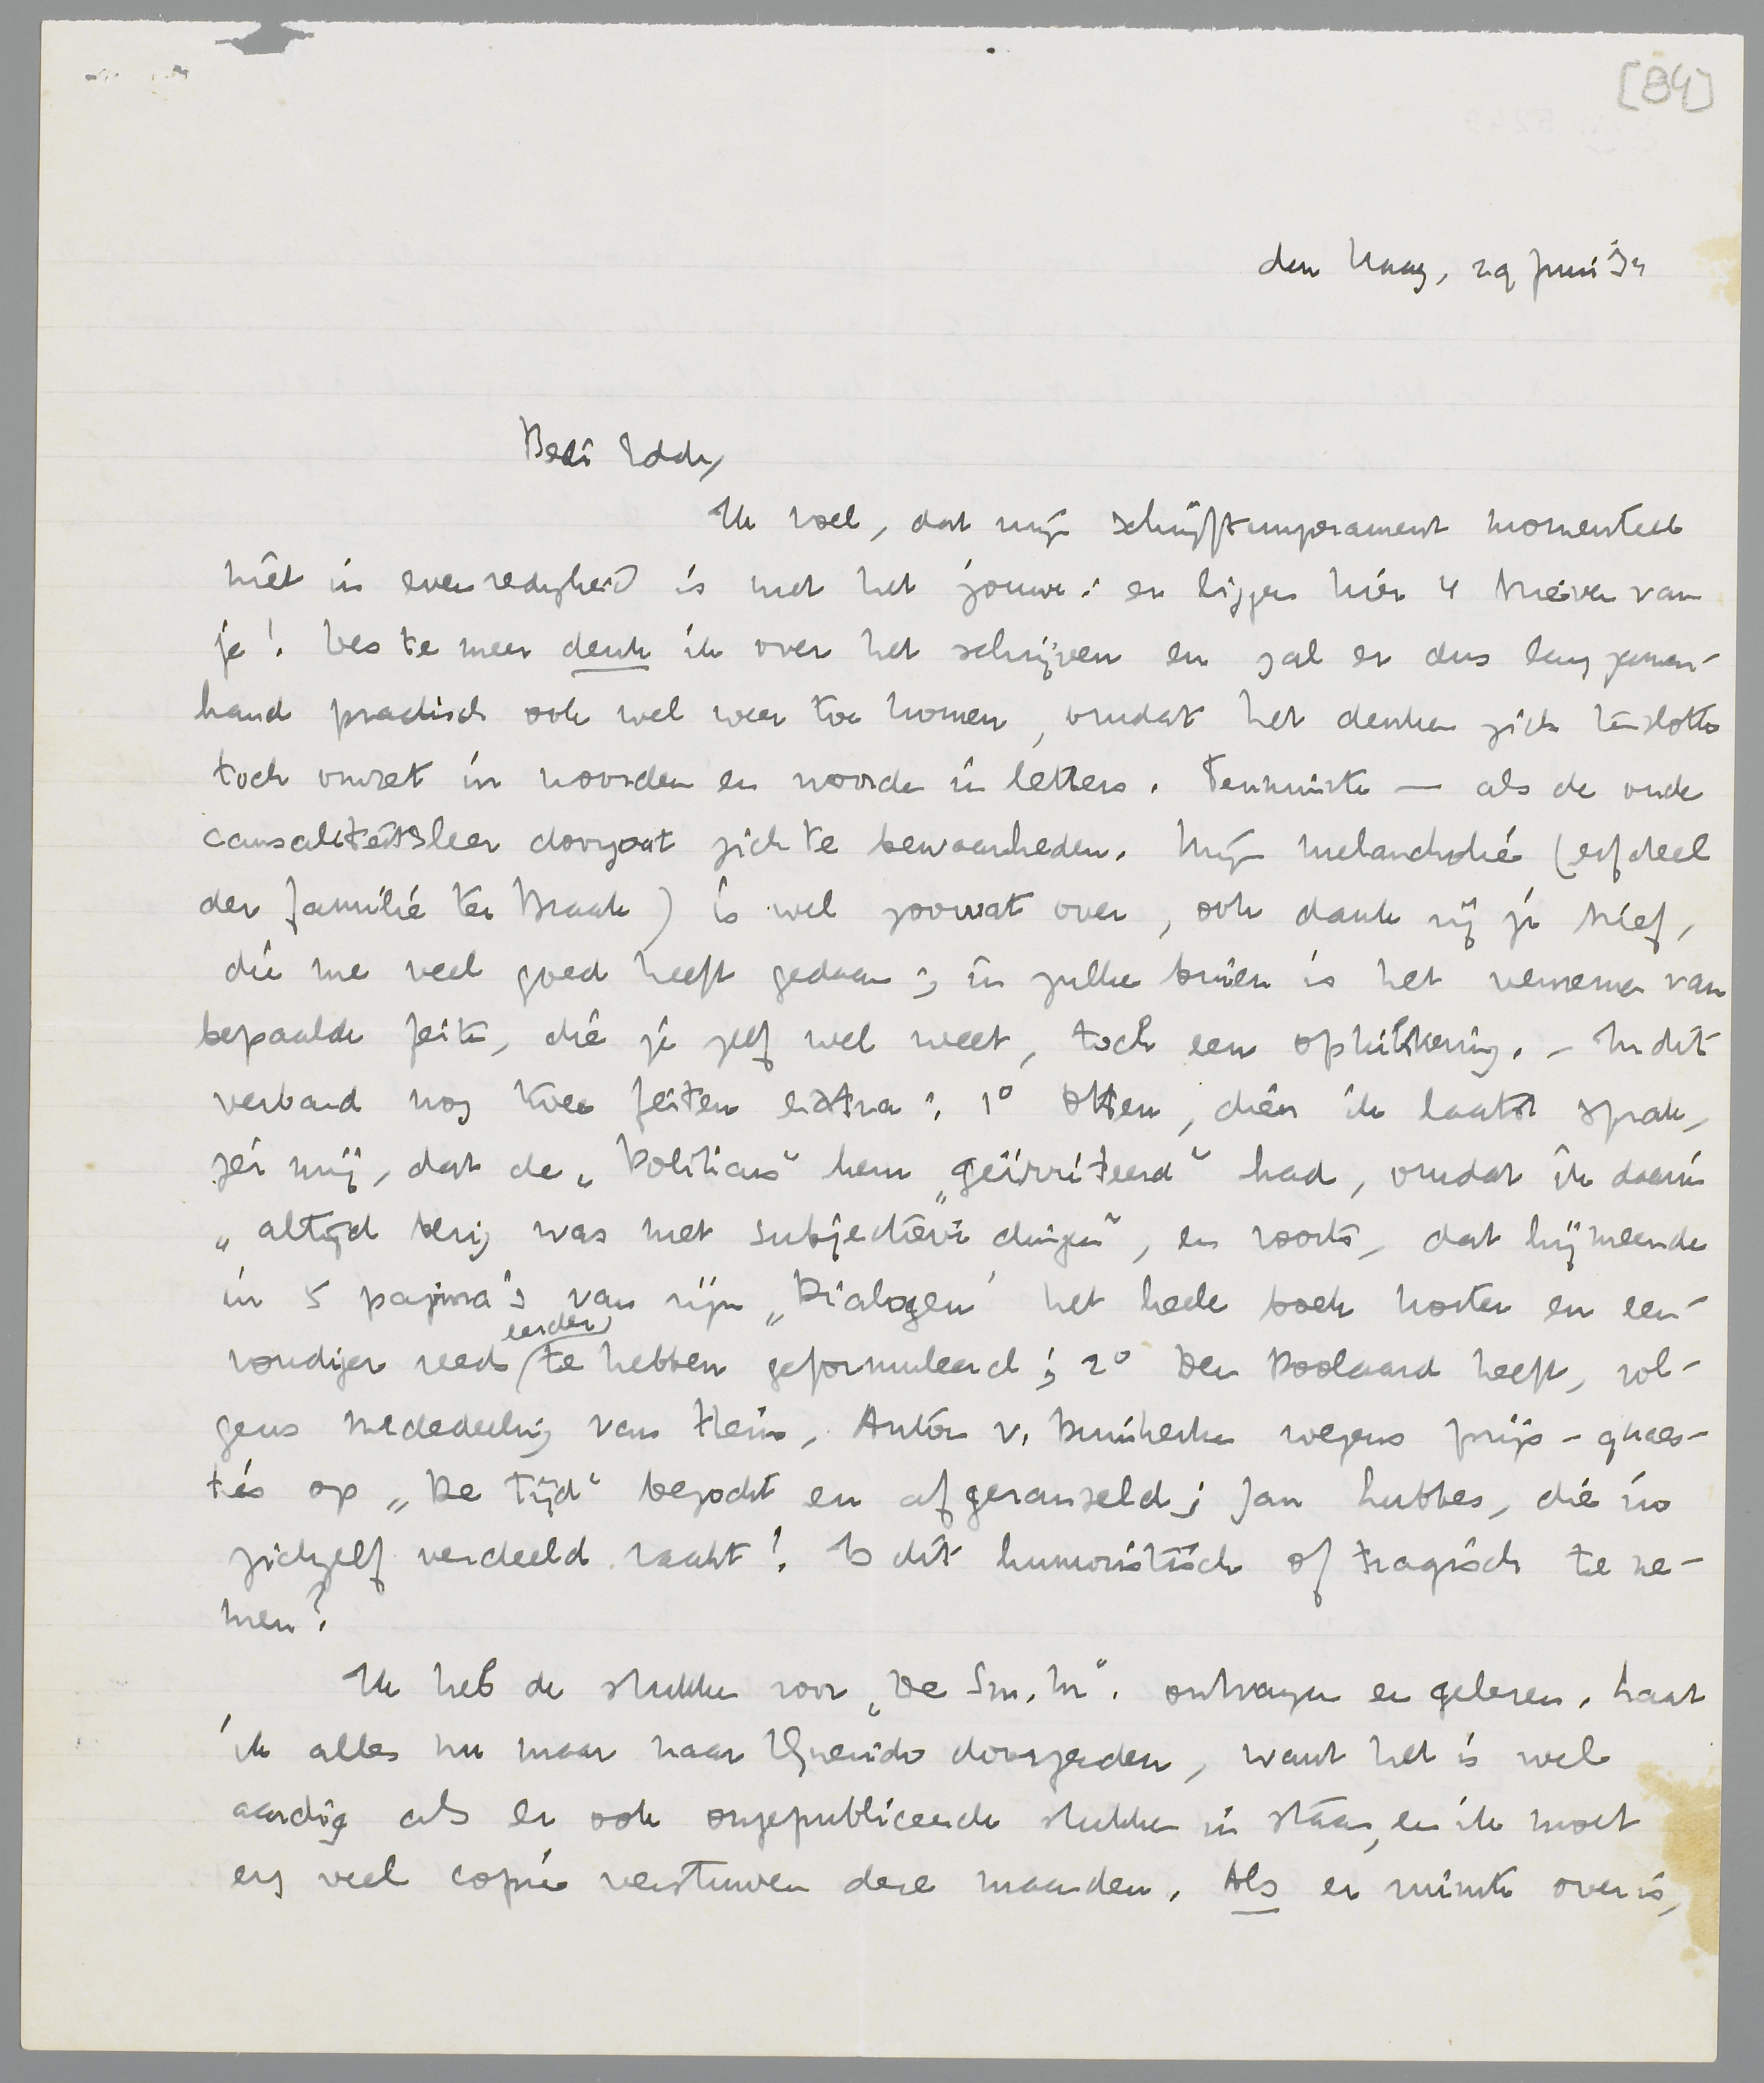 [84]
den Haag, 29 Juni '34
Beste Eddy,
Ik voel, dat mijn schrijftemperament momenteel
niet in evenredigheid is met het jouwe: er liggen hier 4 brieven van
je! Des te meer denk ik over het schrijven en zal er dus langzamer-
hand practisch ook wel weer toe komen, omdat het denken zich tenslotte
toch omzet in woorden en woorden in letters. Tenminste — als de oude
causaliteitsleer doorgaat zich te bewaarheden. Mijn melancholie (erfdeel
der familie ter Braak) is wel zoowat over, ook dank zij je brief,
die me veel goed heeft gedaan; in zulke buien is het vernemen van
bepaalde feiten, die je zelf wel weet, toch een opkikkering. - In dit
verband nog twee feiten extra: 1° Otten, dien ik laatst sprak,
zei mij, dat de „Politicus" hem „geïrriteerd" had, omdat ik daarin
„altijd bezig was met subjectieve dingen", en voorts, dat hij meende
in 5 pagina's van zijn „Dialogen" het heele boek korter en een-
voudiger reeds eerder te hebben geformuleerd; 2° Den Doolaard heeft, vol-
gens mededeeling van Hein, Anton v. Duinkerken wegens prijs-quaes-
ties op „De Tijd" bezocht en afgeranseld; Jan Lubbes, die in
zichzelf verdeeld raakt! Is dit humoristisch of tragisch te ne-
men?
Ik heb de stukken voor „De Sm. M". ontvangen en gelezen. Laat
ik alles nu maar naar Querido doorzenden, want het is wel
aardig als er ook ongepubliceerde stukken in staan, en ik moet
erg veel copie verstuwen deze maanden. Als er ruimte over is,